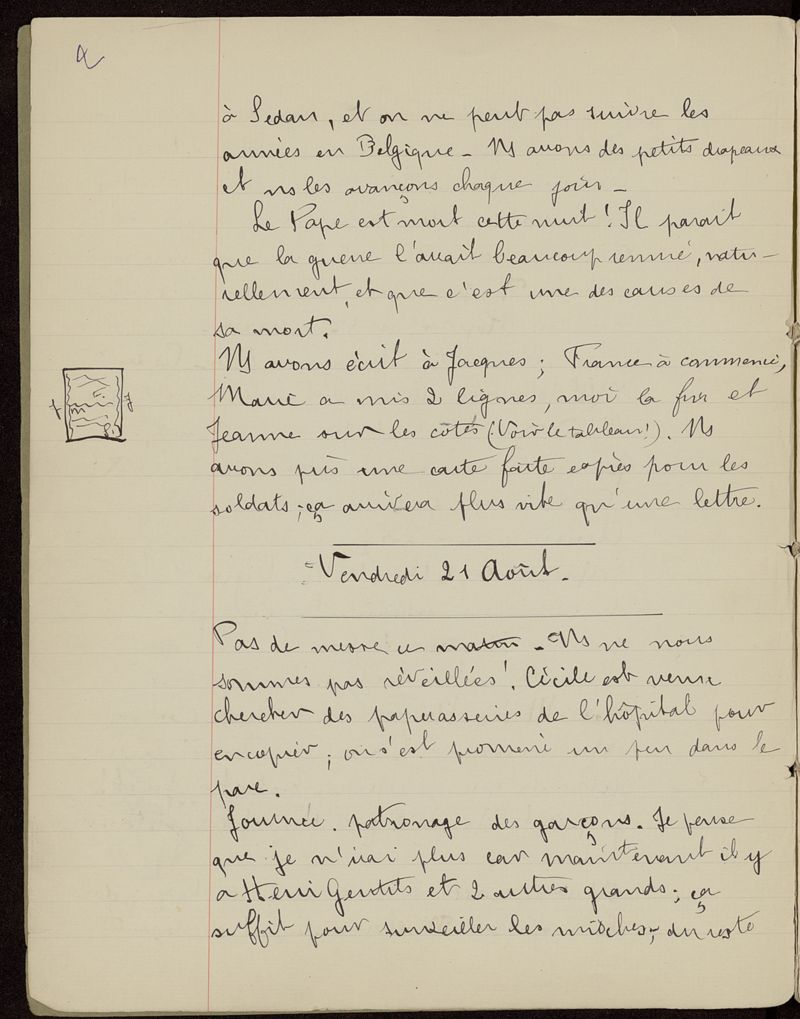 2
à Sedan, et on ne peut pas suivre les
armées en Belgique - Ns avons des petits drapeaux
et ns les avançons chaque jour -
Le Pape est mort cette nuit ! Il parait
que la guerre l'avait beaucoup remué, natu-
rellement, et que c'est une des causes de
sa mort.
Ns avons écrit à Jacques ; France a commencé,
Marie a mis 2 lignes, moi la fin et
Jeanne sur les côtés (Voir le tableau !). Ns
avons pris une carte faite exprès pour les
soldats ; ça arrivera plus vite qu'une lettre.
Vendredi 21 Août.
Pas de messe ce matin - Ns ne nous
sommes pas réveillées ! Cécile est venue
chercher des paperasseries de l'hôpital pour
en copier ; on s'est promené un peu dans le
parc.
Journée. patronage des garçons. Je pense
que je n'irai plus car maintenant il y
a Henri Gentils et 2 autres grands ; ça
suffit pour surveiller les mioches ; du reste